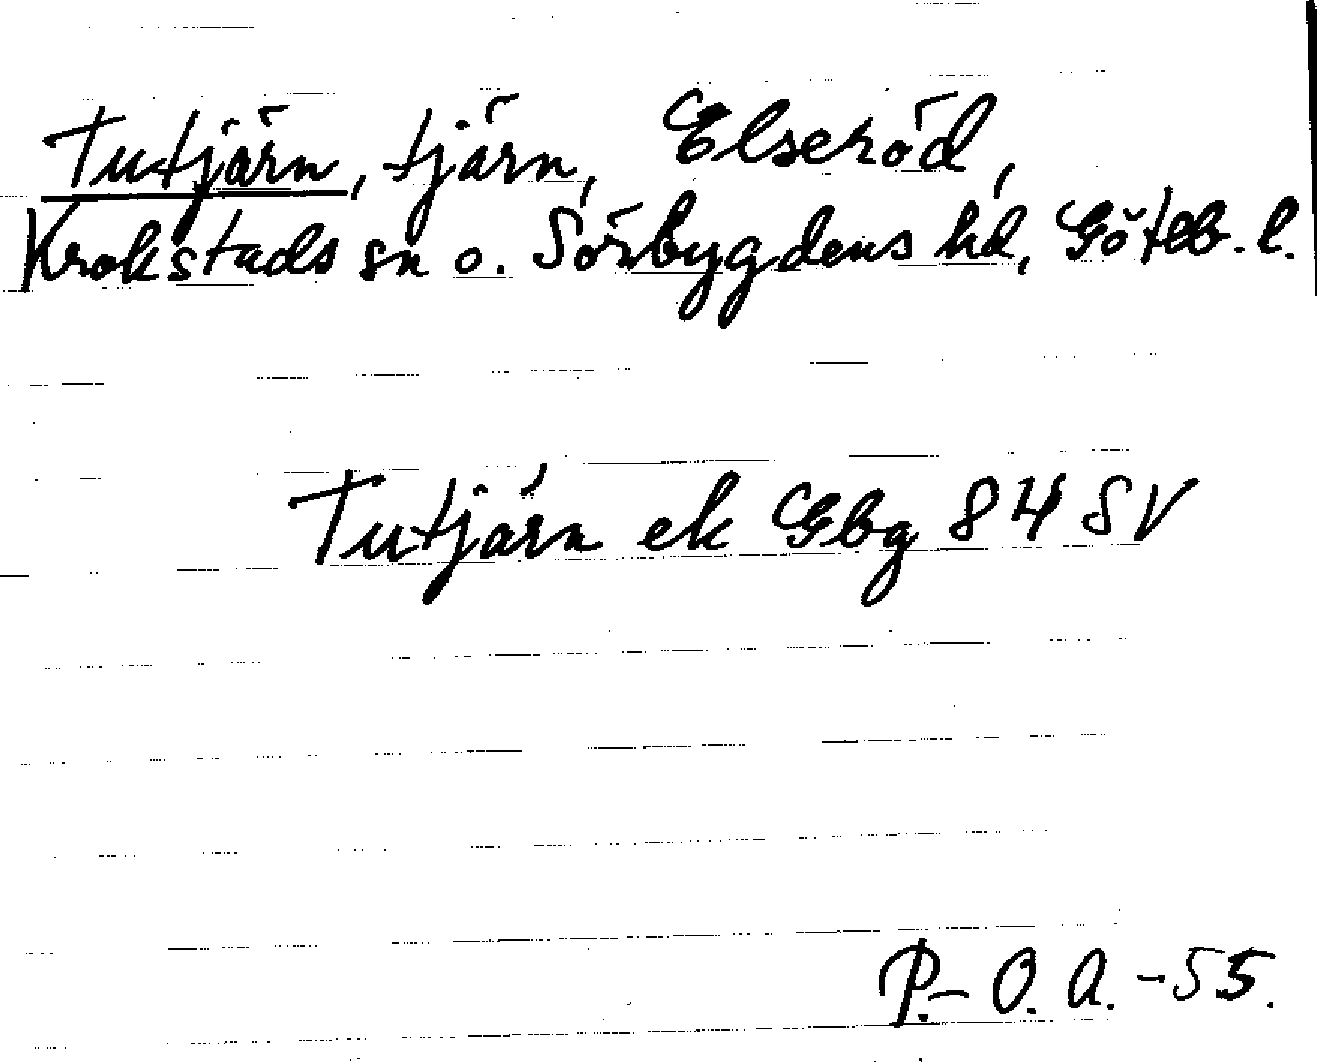 Tutjärn, tjärn, Elseröd,
Krokstads sn o. Sörbygdens hd, Götbb. l.
Tutjärn ek Gbg 84 SV
P.-O. A. -55.